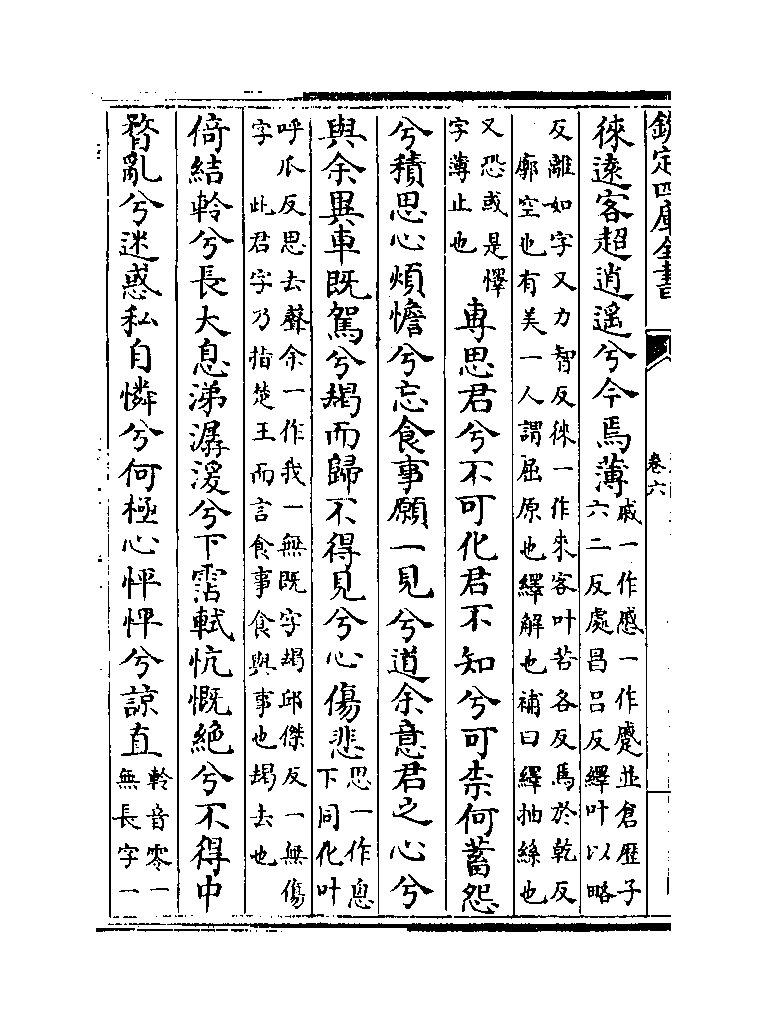 欽定四庫全書
卷六
徠遠客超逍遥兮今焉薄
戚一作慼一作蹙並倉歴子
六二反處昌吕反繹叶以略
反離如字又力智反徠一作來客叶苦各反焉於乾反
廓空也有美一人謂屈原也繹解也補曰繹抽絲也
又恐或是懌
字薄止也
專思君兮不可化君不知兮可柰何蓄怨
兮積思心煩憺兮忘食事願一見兮道余意君之心兮
與余異車既駕兮朅而歸不得見兮心傷悲
思一作息
下同化叶
呼瓜反思去聲余一作我一無既字朅邱傑反一無傷
字 此君字乃指楚王而言食事食與事也朅去也
倚結軨兮長大息涕潺湲兮下霑軾忼慨絶兮不得中
瞀亂兮迷惑私自憐兮何極心怦怦兮諒直
軨音零一
無長字一